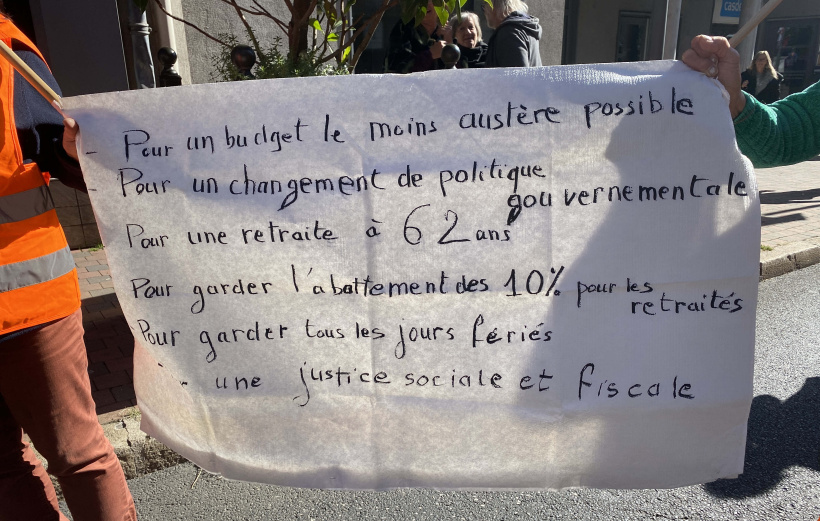 - Pour un budget le moins austère possible
- Pour un changement de politique
gouvernementale
Pour une retraite à 62 ans
Pour garder l'abattement des 10% pour les
retraités
Pour garder tous les jours fériés
" " une justice sociale et fiscale